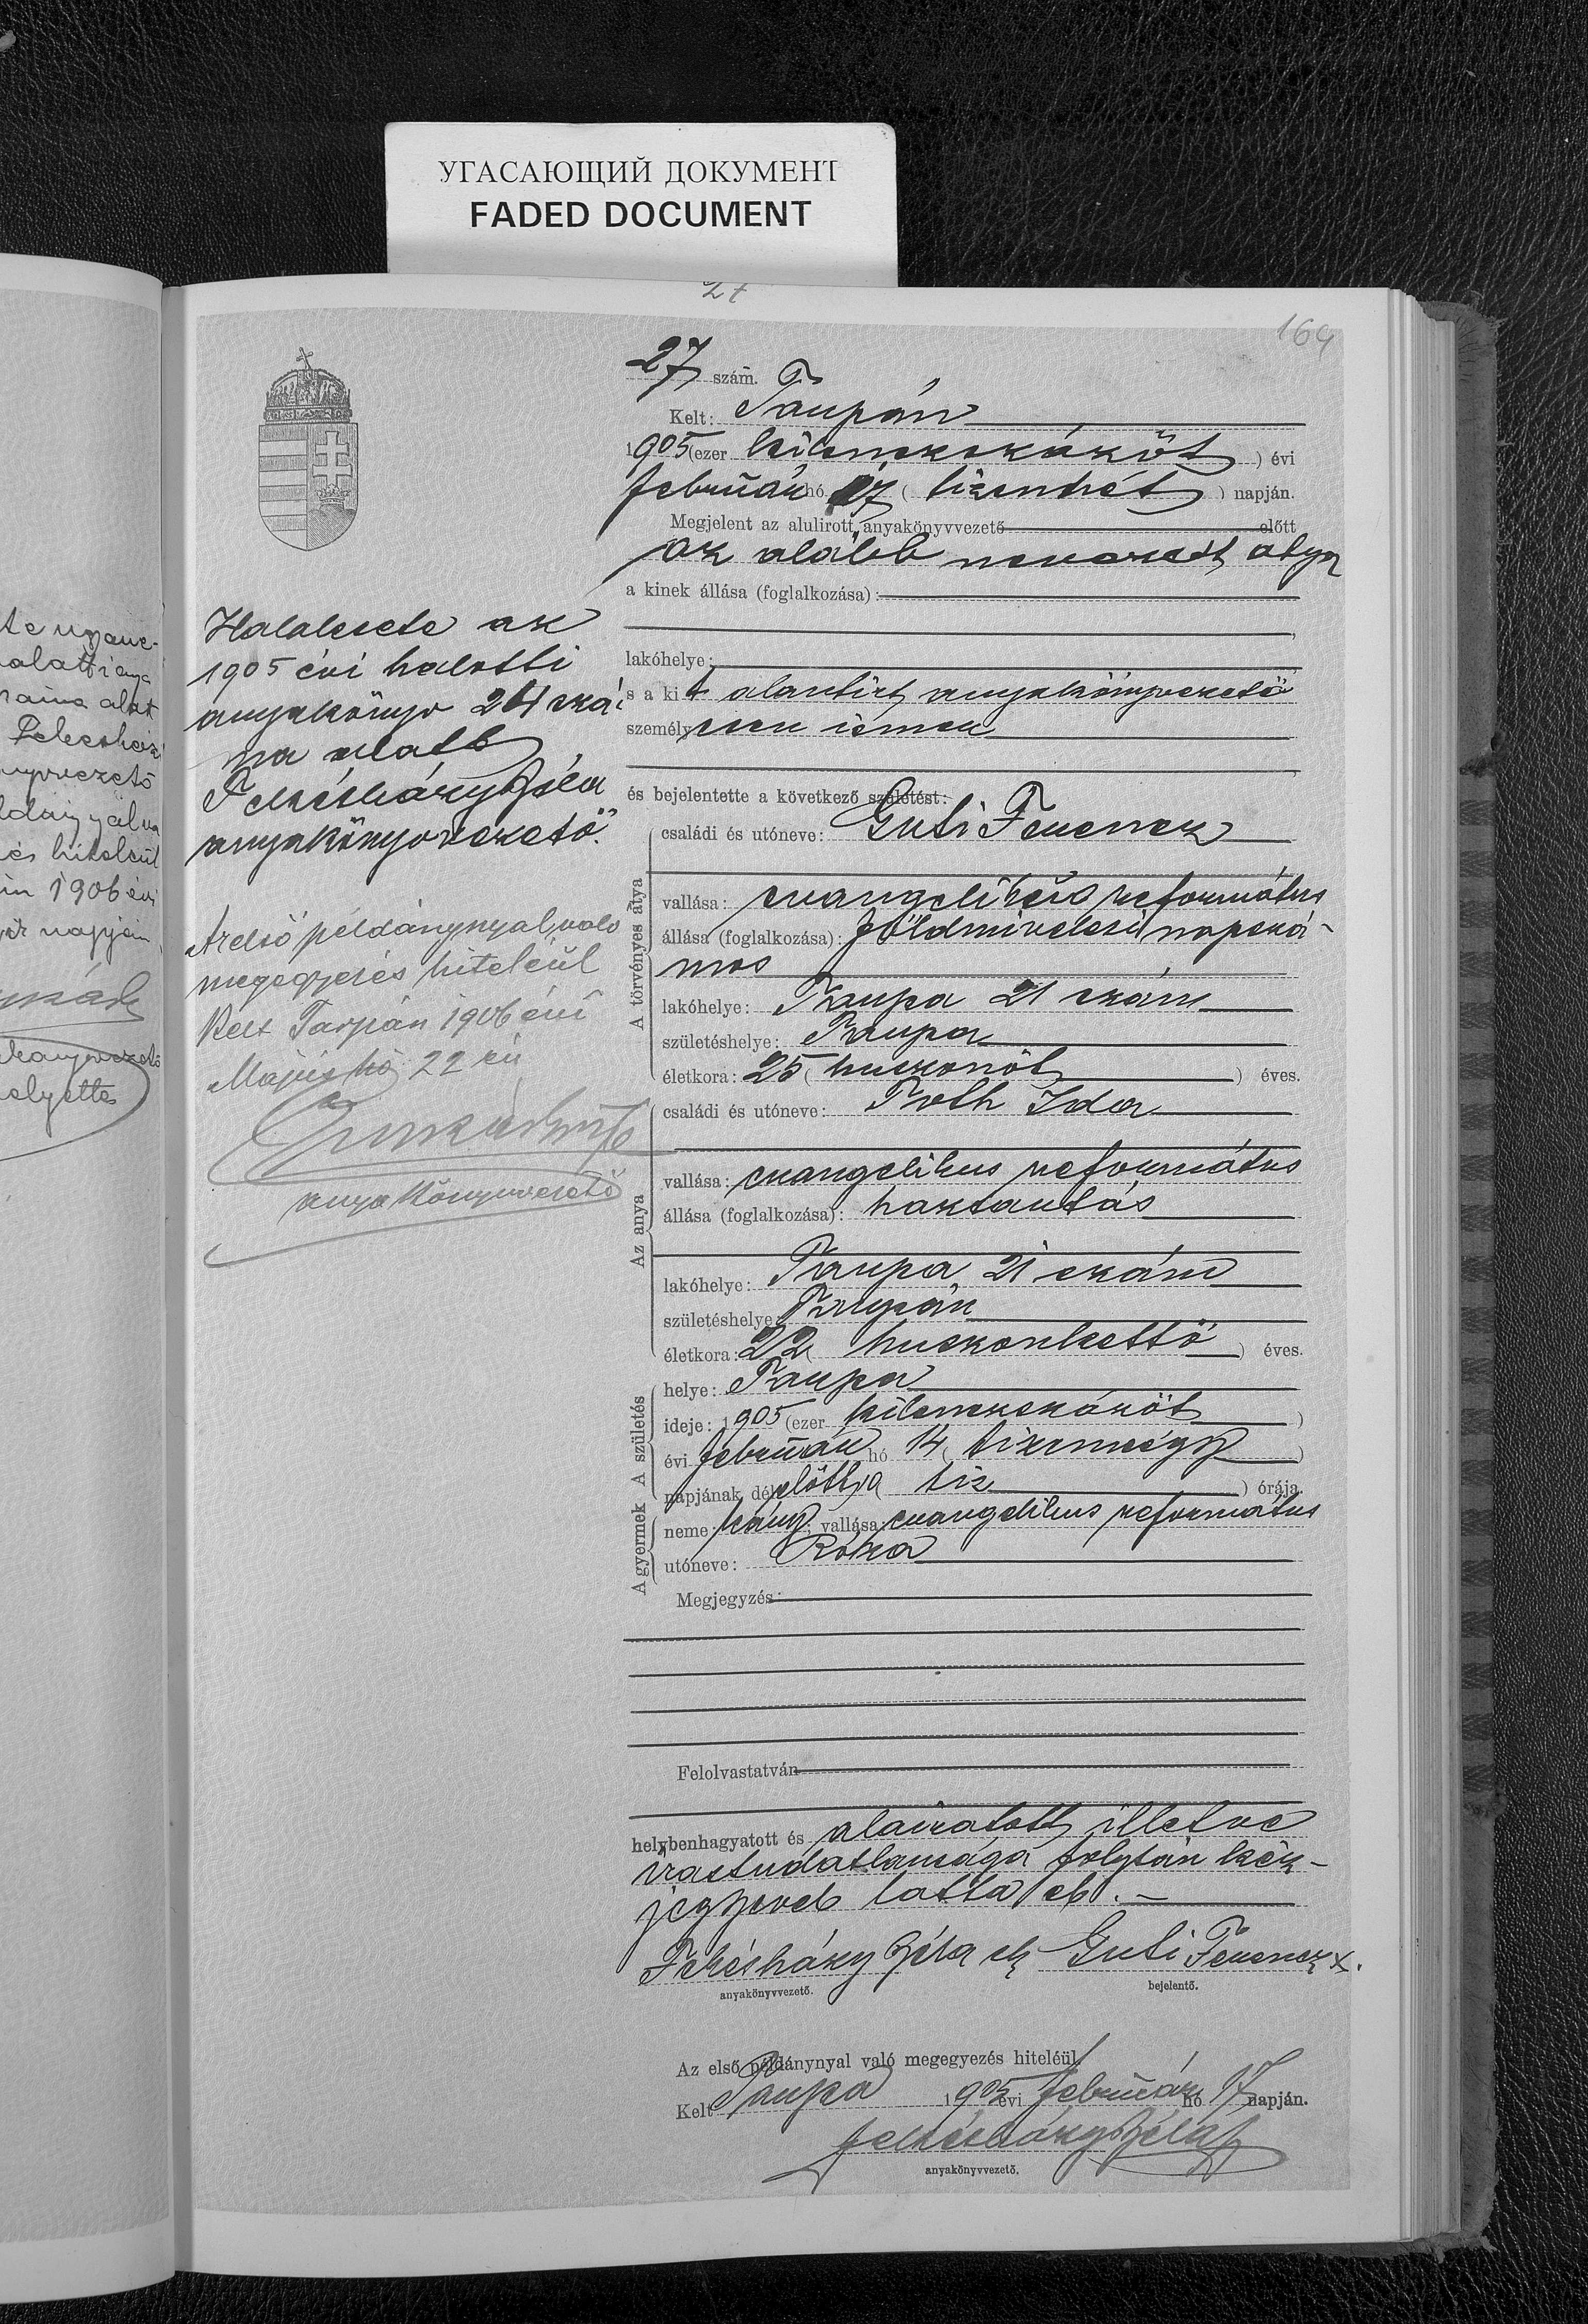 УГАСАЮЩИЙ ДОКУМЕНТ
FADED DOCUMENT
27
164
27 szám.
Kelt: Tarpán
1905 (ezer kilenczszázöt) évi
február hó 17 (tizenhét) napján.
Megjelent az alulirott anyakönyvvezető előtt
az alább nevezett atya
a kinek állása (foglalkozása):
lakóhelye:
s a kit alantirt anyakönyvvezető
személyesen ismer
és bejelentette a következő születést:
A törvényes atya
családi és utóneve: Guti Ferencz
vallása: evangelikus református
állása (foglalkozása): földmivelesi napszá-
mos
lakóhelye: Tarpa 21 szám
születéshelye: Tarpa
életkora: 25 (huszonöt) éves.
Az anya
családi és utóneve: Toth Ida
vallása: evangelikus református
állása (foglalkozása): haztartás
lakóhelye: Tarpa 21 szám
születéshelye: Tarpán
életkora: 22 (huszonkettő) éves.
A születés
helye: Tarpa
ideje: 1905 (ezer kilenczszázöt)
évi február hó 14 (tizennégy)
napjának délelőttja (tiz) órája.
A gyermek
neme: leány; vallása: evangelikus református
utóneve: Róza
Megjegyzés:
Felolvastatván
helybenhagyatott és alairatott illetve
irastudatlansága folytán kéz-
jegyevel latta el. —
Fehésházy Béla sk Guti Ferencz x.
anyakönyvvezető. bejelentő.
Az első példánynyal való megegyezés hiteléül.
Kelt Tarpa 1905 évi február hó 17 napján.
anyakönyvvezető.
Halálesete az
1905 évi halotti
anyakönyv 24 szá-
ma alatt
anyakönyvvezető.
Az első példánynyal való
megegyezés hiteléül
Kelt Tarpán 1906 évi
Május hó 22 én
anyakönyvvezető
1906 évi
napján